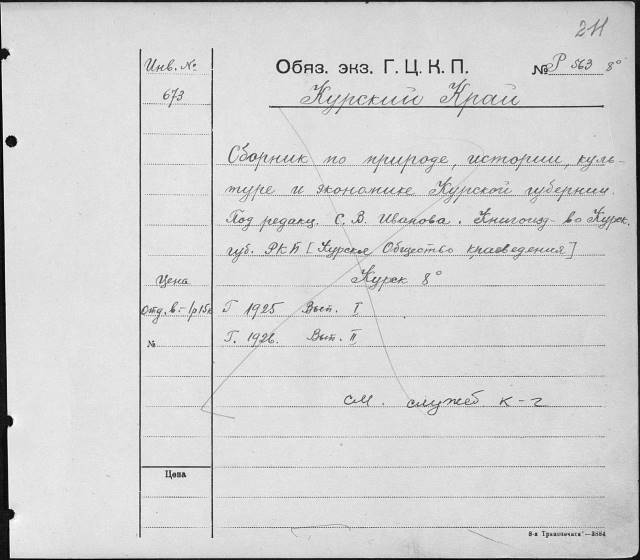 211
Инв. №
673
Обяз. экз. Г. Ц. К. П.
№ Р 563 8°
Курский Край
Сборник по природе, истории, куль-
туре и экономике Курской губернии.
Под редакц. С. В. Иванова. Книгоизд-во Курск.
губ. РКП [Курское Общество краеведения]
Цена
Курск 8°
Отд. в. - 1р15к
Г 1925 Вып. I
№
Г. 1926. Вып. II
см. служеб. к-г
Цена
8-я Транспечать—3884